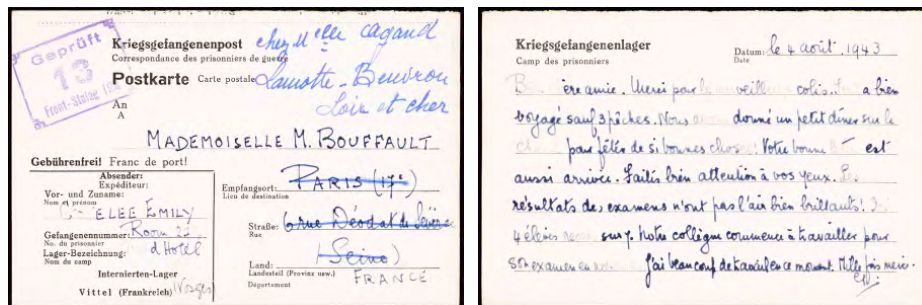 Geprüft
13
Front-Stalag
Kriegsgefangenenpost
Correspondance des prisonniers de guerre
Postkarte Carte postale
chez Melle Cagand
Lamotte-Beuvron
Loir et cher
An
A
MADEMOISELLE M. BOUFFAULT
Gebührenfrei! Franc de port!
Absender:
Expéditeur:
Vor- und Zuname:
Nom et prénom
ELEE EMILY
Gefangenennummer: Room 23
No. du prisonnier
Lager-Bezeichnung: d'Hotel
Nom du camp
Internierten-Lager
Vittel (Frankreich) Vosges
Empfangsort: PARIS (17e)
Lieu de destination
Straße: 6 rue Déodat de
Rue
(Seine)
Land: FRANCE
Landesteil (Provinz usw.)
Département
Kriegsgefangenenlager
Camp des prisonniers
Datum: le 4 août, 1943
Date
ère amie. Merci pour le colis. a bien
voyagé sauf 3 pêches. Nous donné un petit dîner sur le
pour fêter de si bonnes choses! Votre bonne est
aussi arrivée. Faites bien attention à vos yeux. Les
résultats des examens n'ont pas l'air bien brillants!
4 élèves sur 7. Notre collègue commence à travailler pour
son examen en J'ai beaucoup de travail en ce moment. Mille fois merci.